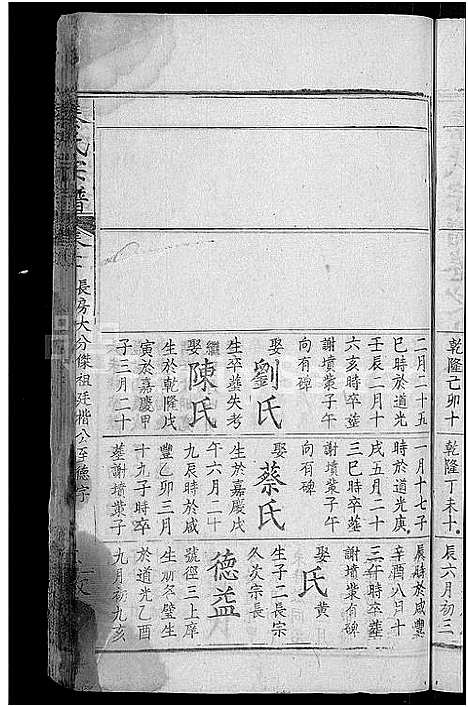 乾隆己卯十
乾隆丁未十
辰六月初三
二月二十五
巳時於道光
壬辰二月十
六亥時卒葬
謝墳業子午
向有碑
娶劉氏
生卒葬失考
繼娶陳氏
生於乾隆戊
寅於嘉慶甲
子三月二十
一月十七子
時於道光庚
戌五月二十
三巳時卒葬
謝墳業子午
向有碑
娶蔡氏
生於嘉慶戊
午六月二十
九辰時於咸
豐乙卯三月
十九子時卒
葬謝墳業子
辰時於咸豐
辛酉八月十
三午時卒葬
謝墳業有碑
娶黃氏
生子二長宗
久次宗長
德益
號徑三上庠
生
於道光乙酉
九月初九亥
氏宗譜
長房大分傑祖廷楷公至德字